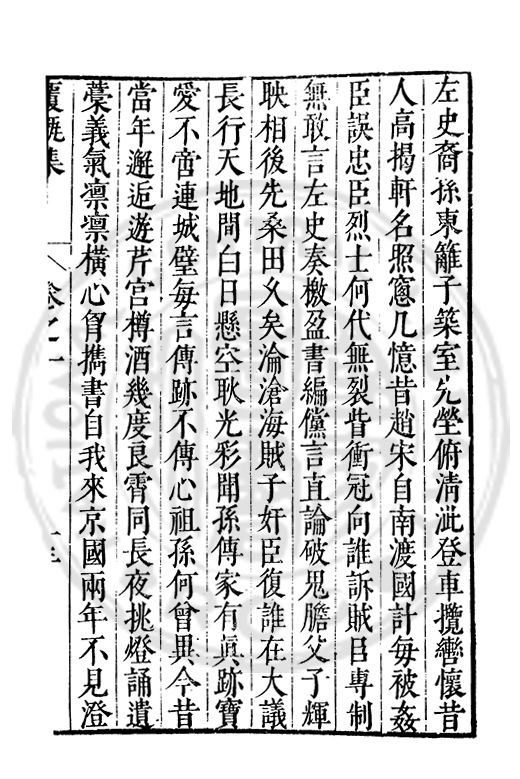 左史裔孫東籬子築室先塋俯清泚登車攬轡懷昔
人高揭軒名照窻几憶昔趙宋自南渡國計每被姦
臣誤忠臣烈士何代無裂眥衝冠向誰訴賊臣專制
無敢言左史奏檄盈書編儻言直論破鬼膽父子輝
映相後先桑田久矣淪滄海賊子奸臣復誰在大議
長行天地間白日懸空耿光彩聞孫傳家有眞跡寶
愛不啻連城璧每言傳跡不傳心祖孫何曾異今昔
當年邂逅遊芹宮樽酒幾度良霄同長夜挑燈誦遺
藁義氣凛凛橫心胷擕書自我來京國兩年不見澄
覆瓿集
卷之一